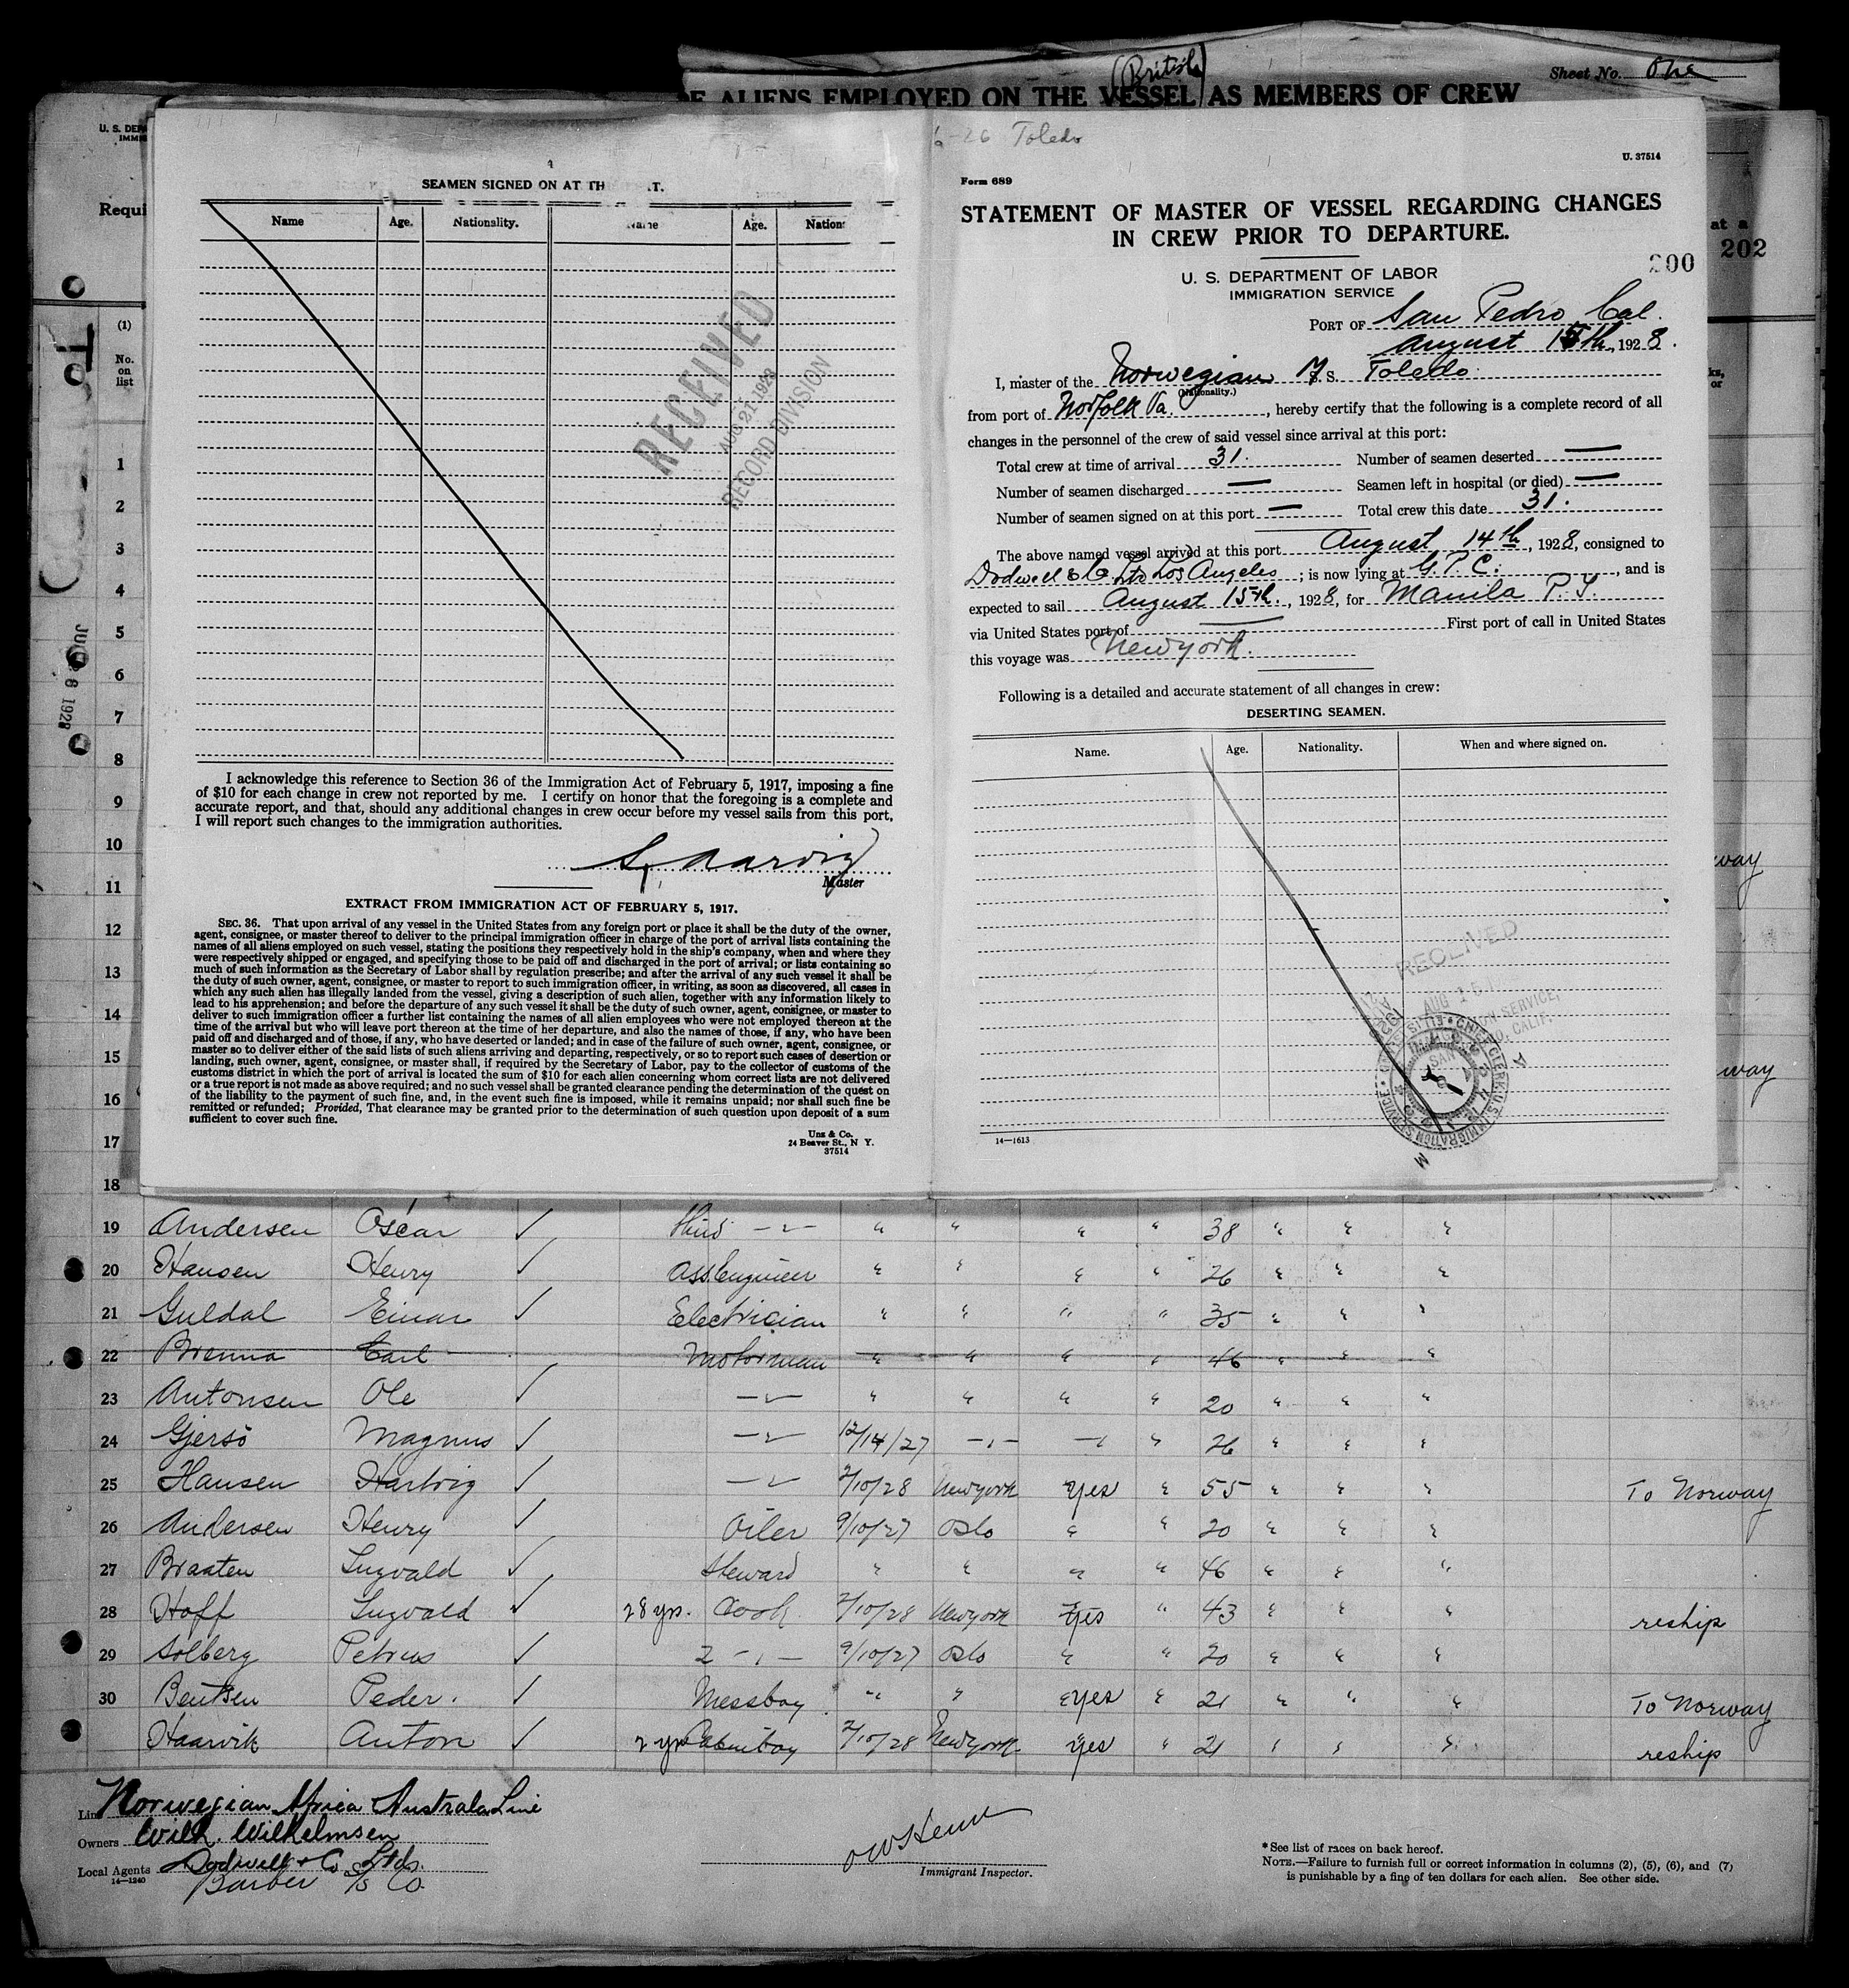 (British)
Sheet No. One
OF ALIENS EMPLOYED ON THE VESSEL AS MEMBERS OF CREW
U. S. DEPA
IMMI
Requi
at a
202
(1)
No.
on
list
1
2
3
4
5
6
7
8
9
10
11
12
13
14
15
16
17
18
SEAMEN SIGNED ON AT TH T.
Name Age. Nationality. Name Age. Nation
RECEIVED
AUG 21 1928
RECORD DIVISION
I acknowledge this reference to Section 36 of the Immigration Act of February 5, 1917, imposing a fine
of $10 for each change in crew not reported by me. I certify on honor that the foregoing is a complete and
accurate report, and that, should any additional changes in crew occur before my vessel sails from this port,
I will report such changes to the immigration authorities.
Aarvig
Master
EXTRACT FROM IMMIGRATION ACT OF FEBRUARY 5, 1917.
SEC. 36. That upon arrival of any vessel in the United States from any foreign port or place it shall be the duty of the owner,
agent, consignee, or master thereof to deliver to the principal immigration officer in charge of the port of arrival lists containing the
names of all aliens employed on such vessel, stating the positions they respectively hold in the ship's company, when and where they
were respectively shipped or engaged, and specifying those to be paid off and discharged in the port of arrival; or lists containing so
much of such information as the Secretary of Labor shall by regulation prescribe; and after the arrival of any such vessel it shall be
the duty of such owner, agent, consignee, or master to report to such immigration officer, in writing, as soon as discovered, all cases in
which any such alien has illegally landed from the vessel, giving a description of such alien, together with any information likely to
lead to his apprehension; and before the departure of any such vessel it shall be the duty of such owner, agent, consignee, or master to
deliver to such immigration officer a further list containing the names of all alien employees who were not employed thereon at the
time of the arrival but who will leave port thereon at the time of her departure, and also the names of those, if any, who have been
paid off and discharged and of those, if any, who have deserted or landed; and in case of the failure of such owner, agent, consignee, or
master so to deliver either of the said lists of such aliens arriving and departing, respectively, or so to report such cases of desertion or
landing, such owner, agent, consignee, or master shall, if required by the Secretary of Labor, pay to the collector of customs of the
customs district in which the port of arrival is located the sum of $10 for each alien concerning whom correct lists are not delivered
or a true report is not made as above required; and no such vessel shall be granted clearance pending the determination of the quest on
of the liability to the payment of such fine, and, in the event such fine is imposed, while it remains unpaid; nor shall such fine be
remitted or refunded; Provided, That clearance may be granted prior to the determination of such question upon deposit of a sum
sufficient to cover such fine.
Unz & Co.
24 Beaver St., N Y.
37514
-26 Toledo
U. 37514
Form 689
STATEMENT OF MASTER OF VESSEL REGARDING CHANGES
IN CREW PRIOR TO DEPARTURE.
200
U. S. DEPARTMENT OF LABOR
IMMIGRATION SERVICE
PORT OF San Pedro, Cal.
August 15th, 1928.
I, master of the Norwegian M. S. Toledo
(Nationality.)
from port of Norfolk Va., hereby certify that the following is a complete record of all
changes in the personnel of the crew of said vessel since arrival at this port:
Total crew at time of arrival 31. Number of seamen deserted —
Number of seamen discharged — Seamen left in hospital (or died) —
Number of seamen signed on at this port — Total crew this date 31.
The above named vessel arrived at this port August 14th, 1928, consigned to
Dodwell & Co Ltd Los Angeles; is now lying at G.P.C., and is
expected to sail August 15th., 1928, for Manila P.I.
via United States port of — First port of call in United States
this voyage was Newyork.
Following is a detailed and accurate statement of all changes in crew:
DESERTING SEAMEN.
Name. Age. Nationality. When and where signed on.
RECEIVED
AUG 15
14—1613
way
way
19 Andersen Oscar ✓ third -"- " " " " 38 " " "
20 Hansen Henry ✓ Ass.Engineer " " " " 26 " " "
21 Guldal Einar ✓ Electrician " " " " 35 " " "
22 Brenna Carl Motorman " " " " 46 " " "
23 Antonsen Ole ✓ -"- " " " " 20 " " "
24 Gjersö Magnus ✓ -"- 12/14/27 -"- -" " 26 " " "
25 Hansen Hartvig ✓ -"- 2/10/28 Newyork Yes " 55 " " " To Norway
26 Andersen Henry ✓ Oiler 9/10/27 Oslo " " 20 " " "
27 Braaten Ingvald ✓ Steward " " " " 46 " " "
28 Hoff Ingvald ✓ 28 yrs. Cook 2/10/28 Newyork Yes " 43 " " " reship
29 Solberg Petrus ✓ 2 -"- 9/10/27 Oslo " " 20 " " "
30 Bentsen Peder. ✓ Messboy " " Yes " 21 " " " To Norway
Haarvik Anton ✓ 2 yrs Cabinboy 2/10/28 Newyork Yes " 21 " " " reship
Line Norwegian Africa Australa Line
Owners Wilh. Wilhelmsen
Local Agents Dodwell & Co Ltd.
14—1240
Barber S/S Co.
Immigrant Inspector.
* See list of races on back hereof.
NOTE.—Failure to furnish full or correct information in columns (2), (5), (6), and (7)
is punishable by a fine of ten dollars for each alien. See other side.